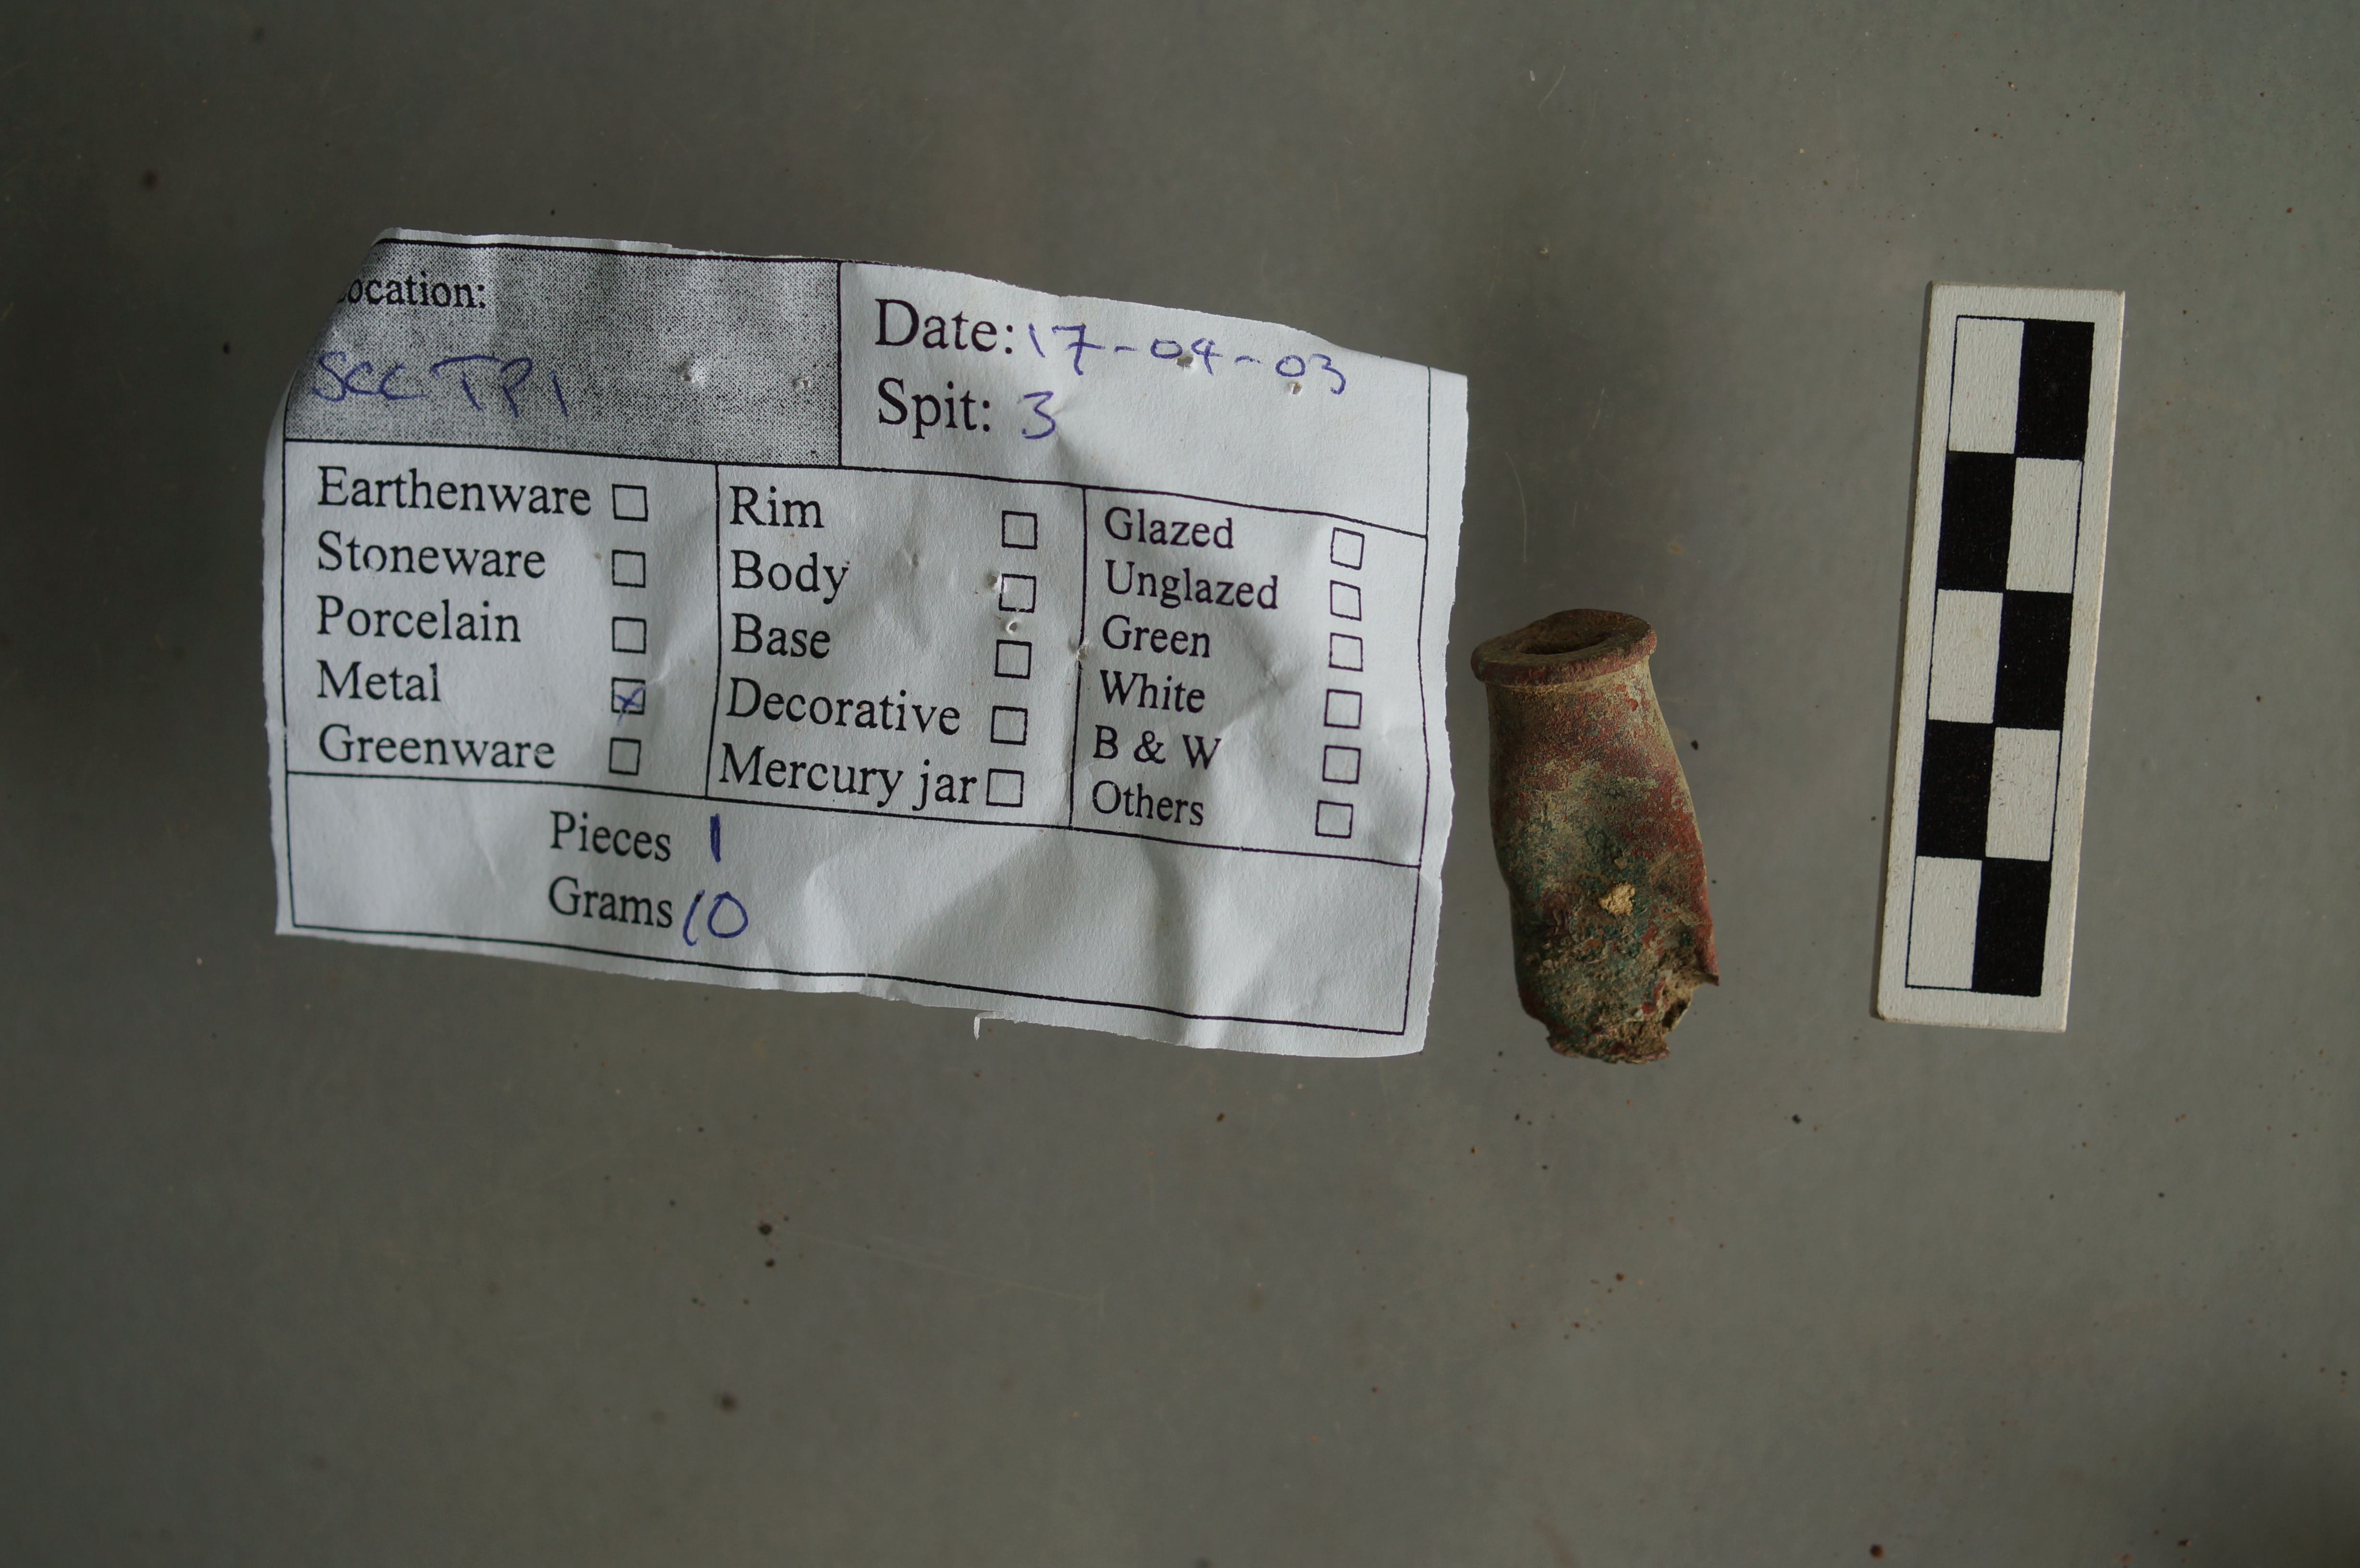 ocation:
SCC TP1
Date: 17-04-03
Spit: 3
Earthenware
Stoneware
Porcelain
Metal
Greenware
Rim
Body
Base
Decorative
Mercury jar
Glazed
Unglazed
Green
White
B & W
Others
Pieces 1
Grams 10